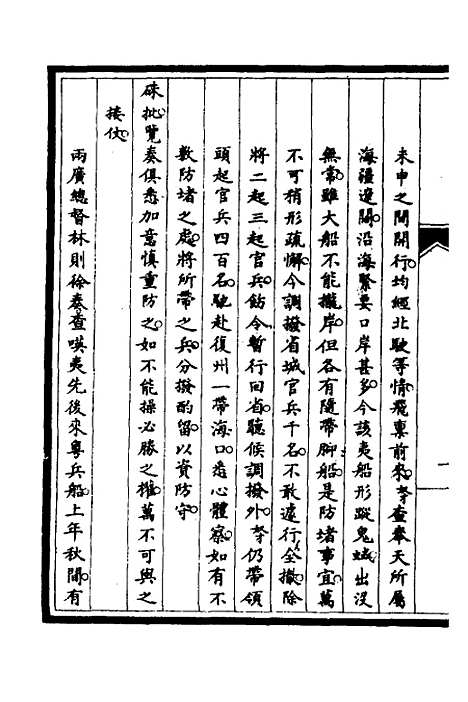 未申之間開行均經北駛等情飛稟前來㝊查奉天所屬
海疆遼闊沿海緊要口岸甚多今該夷船形蹤鬼蜮出沒
無常雖大船不能攏岸但各有隨帶腳船是防堵事宜萬
不可稍形疏懈今調撥省城官兵千名不敢遽行全撤除
將二起三起官兵飭令暫行回省聽候調撥外㝊仍帶領
頭起官兵四百名馳赴復州一帶海口悉心體察如有不
敷防堵之處將所帶之兵分撥酌留以資防守
硃批覽奏俱悉加意慎重防之如不能操必勝之權萬不可與之
接仗
兩廣總督林則徐奏查嘆夷先後來粵兵船上年秋間有
一